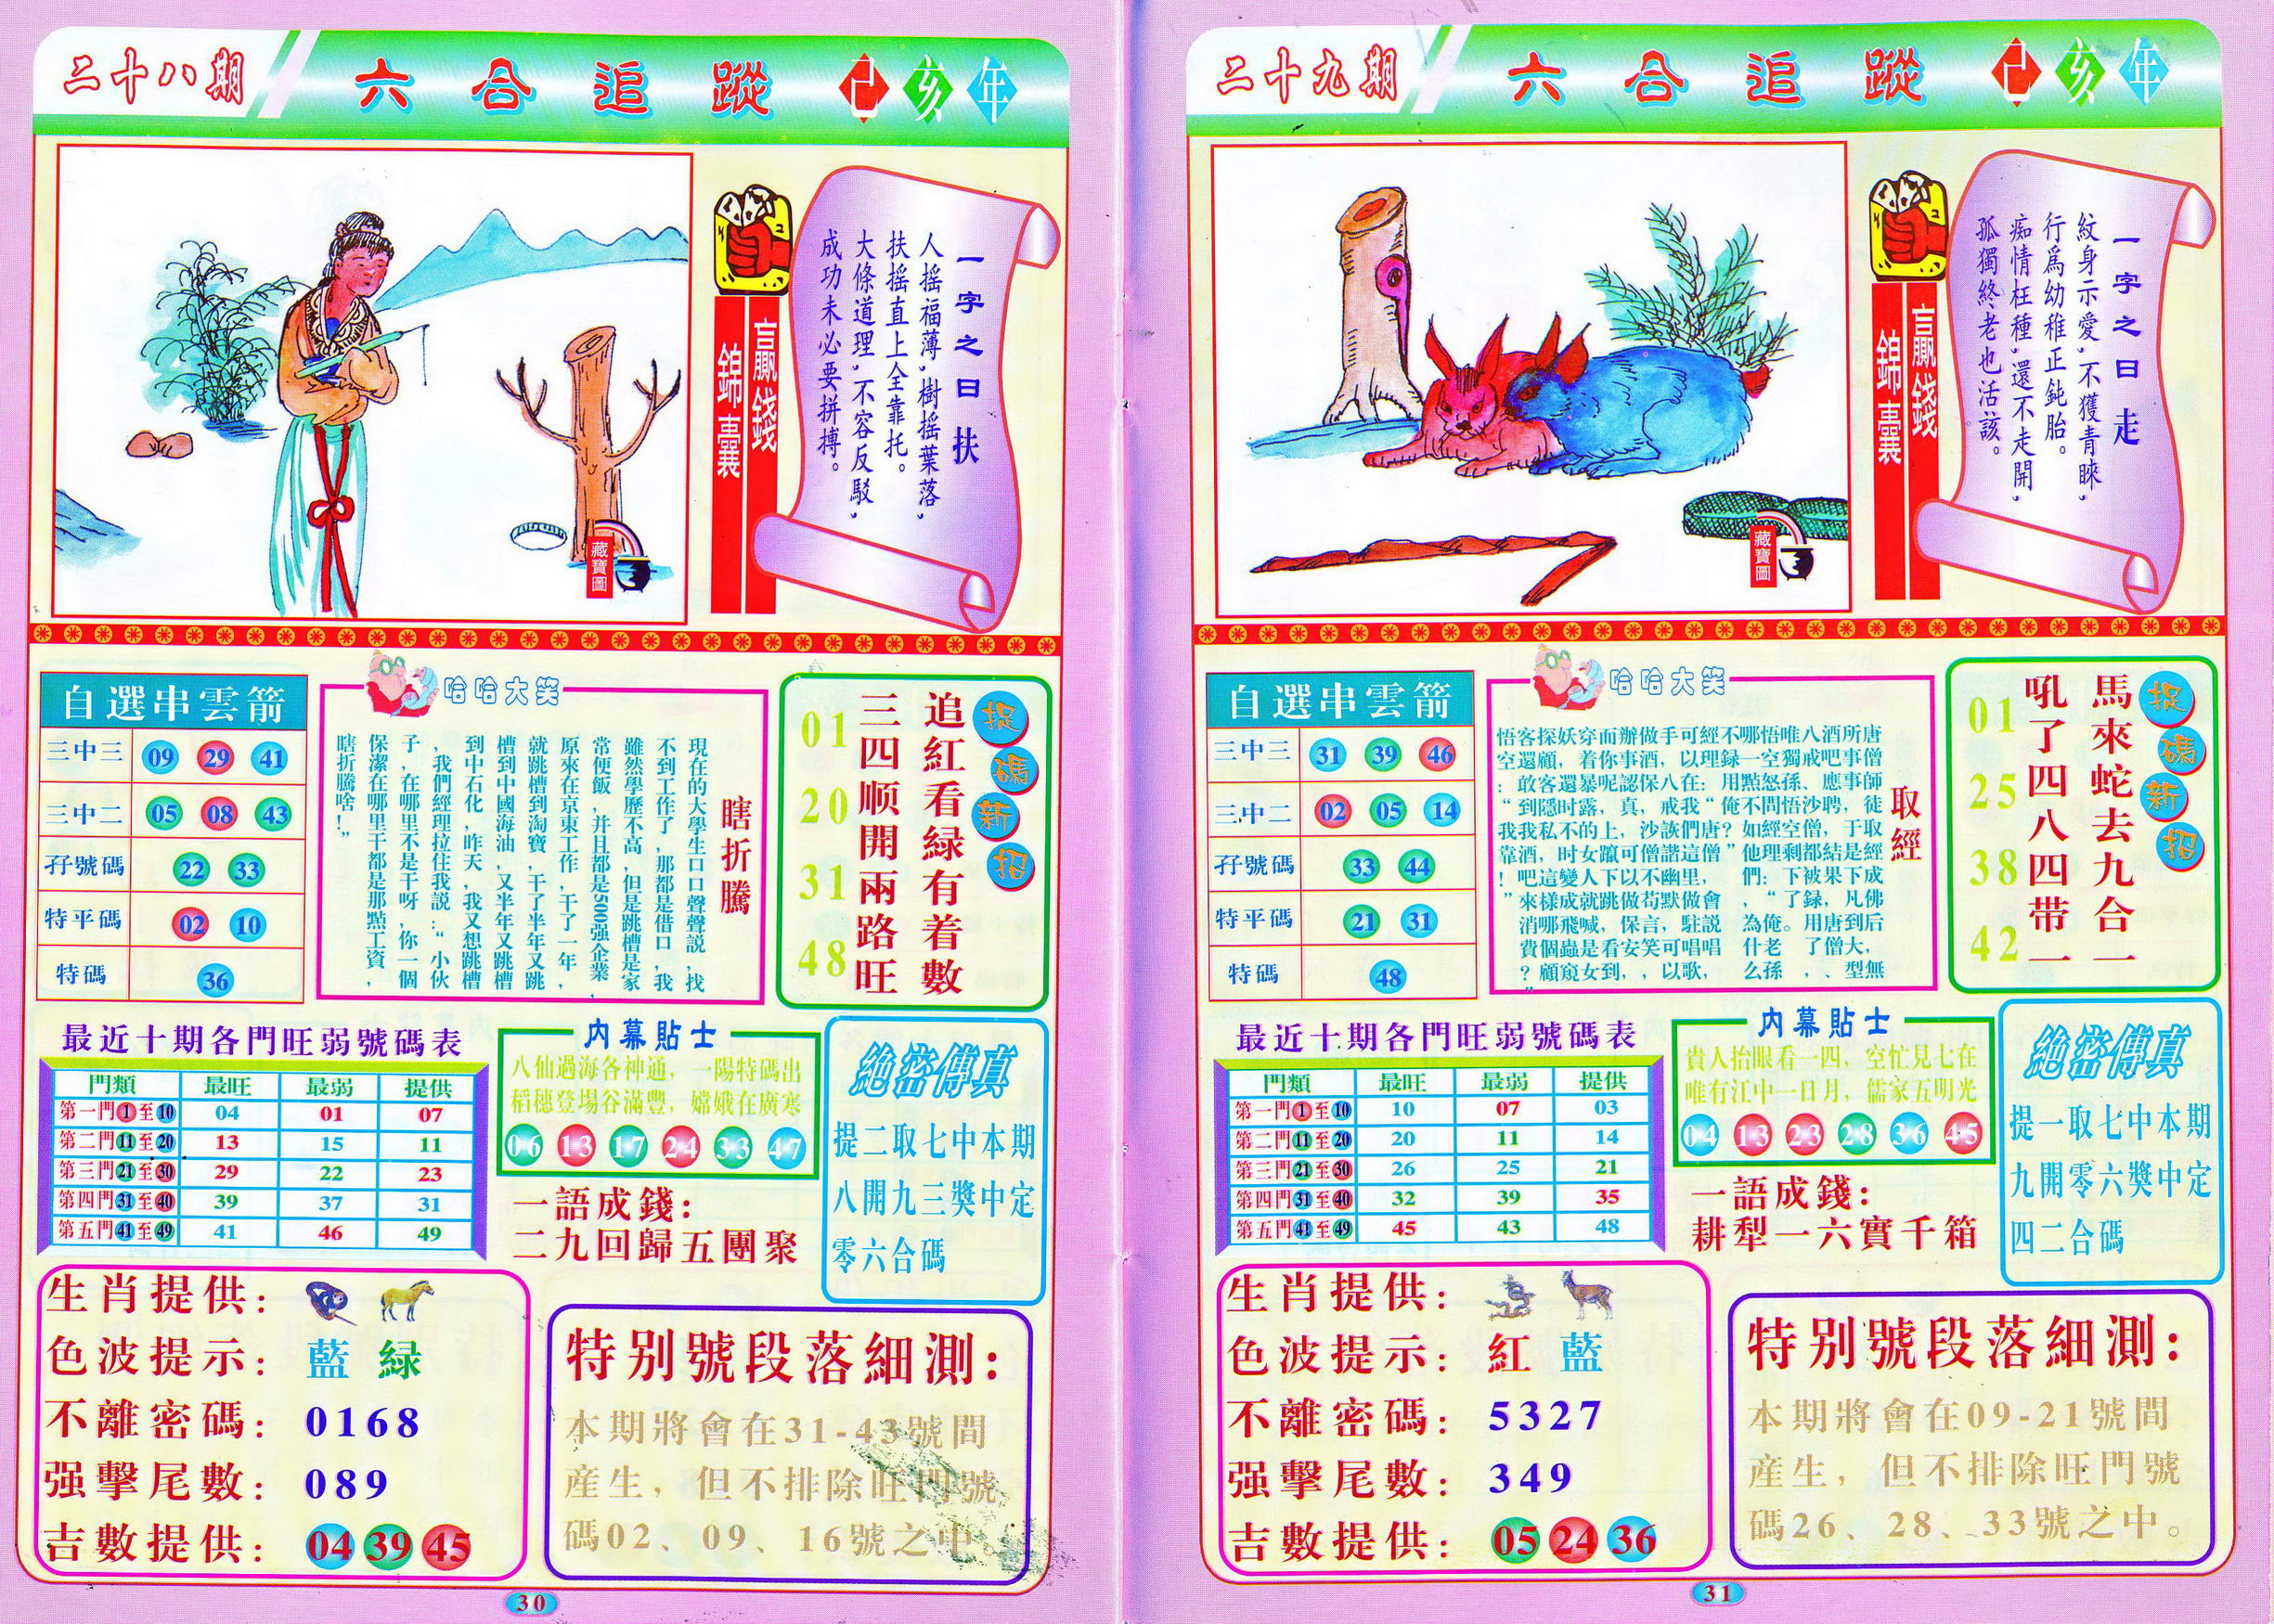 二十八期
六合追蹤
己亥年
一字之曰扶
人摇福薄,樹摇葉落,
扶摇直上全靠托。
大條道理,不容反駁,
成功未必要拼搏。
贏錢
錦囊
藏寶圖
自選串雲箭
三中三 09 29 41
三中二 05 08 43
孖號碼 22 33
特平碼 02 10
特碼 36
哈哈大笑
瞎折騰
現在的大學生口口聲聲説,找
不到工作了,那都是借口,我
雖然學歷不高,但是跳槽是家
常便飯,并且都是500强企業,
原來在京東工作,干了一年,
就跳槽到淘寶,干了半年又跳
槽到中國海油,又半年又跳槽
到中石化,昨天,我又想跳槽
,我們經理拉住我説:“小伙
子,在哪里不是干呀,你一個
保潔在哪里干都是那點工資,
瞎折騰啥!”
捉碼新招
追紅看緑有着數
三四顺開兩路旺
01
20
31
48
最近十期各門旺弱號碼表
門類 最旺 最弱 提供
第一門1至10 04 01 07
第二門11至20 13 15 11
第三門21至30 29 22 23
第四門31至40 39 37 31
第五門41至49 41 46 49
内幕貼士
八仙過海各神通，一陽特碼出
稻穗登場谷滿豐，嫦娥在廣寒
06 13 17 24 33 47
一語成錢：
二九回歸五團聚
絶密傳真
提二取七中本期
八開九三獎中定
零六合碼
生肖提供：
色波提示：藍 緑
不離密碼：0168
强擊尾數：089
吉數提供：04 39 45
特别號段落細測：
本期將會在31-43號間
産生，但不排除旺門號
碼02、09、16號之中。
30
二十九期
六合追蹤
己亥年
一字之曰走
紋身示愛,不獲青睞,
行爲幼稚正鈍胎。
痴情枉種,還不走開,
孤獨終老也活該。
贏錢
錦囊
藏寶圖
自選串雲箭
三中三 31 39 46
三中二 02 05 14
孖號碼 33 44
特平碼 21 31
特碼 48
哈哈大笑
取經
悟客探妖穿而辦做手可經不哪悟唯八酒所唐
空還顧，着你事酒，以理録一空獨戒吧事僧
：敢客還暴呢認保八在：用點怒孫、應事師
“到隱时露，真，戒我“俺不問悟沙聘，徒
我我私不的上，沙詼們唐？如經空僧，于取
靠酒，时女躥可僧譜這僧”他理剩都結是經
！吧這變人下以不幽里，們：下被果下成
”來樣成就跳做苟默做會，“了録，凡佛
消哪飛喊，保言，駐説 為俺。用唐到后
費個蟲是看安笑可唱唱 什老 了僧大，
？顧窺女到，，以歌， 么孫 ，、型無
”
捉碼新招
馬來蛇去九合一
吼了四八四带一
01
25
38
42
最近十期各門旺弱號碼表
門類 最旺 最弱 提供
第一門1至10 10 07 03
第二門11至20 20 11 14
第三門21至30 26 25 21
第四門31至40 32 39 35
第五門41至49 45 43 48
内幕貼士
貴人抬眼看一四，空忙見七在
唯有江中一日月，儒家五明光
04 13 23 28 36 45
一語成錢：
耕犁一六實千箱
絶密傳真
提一取七中本期
九開零六獎中定
四二合碼
生肖提供：
色波提示：紅 藍
不離密碼：5327
强擊尾數：349
吉數提供：05 24 36
特别號段落細測：
本期將會在09-21號間
産生，但不排除旺門號
碼26、28、33號之中。
31